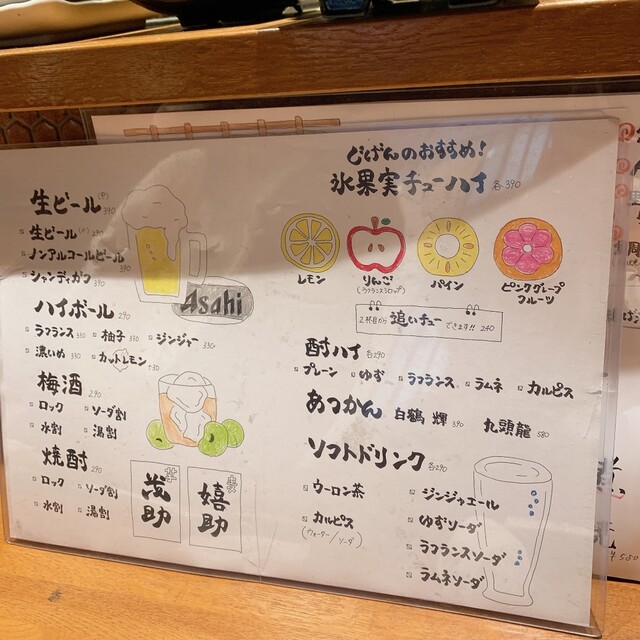 生ビール(中) 390
生ビール(小) 290
ノンアルコールビール 390
シャンディガフ 390
Asahi
ハイボール 290
ラフランス 330 柚子 330 ジンジャー 330
濃いめ 330 カットレモン +30
梅酒 290
ロック ソーダ割
水割 湯割
焼酎 290
ロック ソーダ割
水割 湯割
芋 茂助
麦 嬉助
じげんのおすすめ!
氷果実チューハイ 各390
レモン りんご パイン ピンクグレープフルーツ
(ラフランスシロップ)
2杯目から 追いチュー できます!! 240
酎ハイ 各290
プレーン ゆず ラフランス ラムネ カルピス
あつかん 白鶴 輝 390 九頭龍 580
ソフトドリンク 各290
ウーロン茶 ジンジャエール
カルピス ゆずソーダ
(ウォーター/ソーダ) ラフランスソーダ
ラムネソーダ